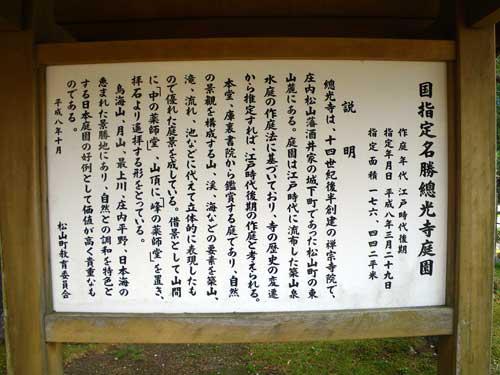 国指定名勝總光寺庭園
作庭年代 江戸時代後期
指定年月日 平成八年三月二十九日
指定面積 一七六、四四二平米
説明
總光寺は、十四世紀後半創建の禅宗寺院で、
庄内松山藩酒井家の城下町であった松山町の東
山麓にある。庭園は江戸時代に流布した築山泉
水庭の作庭法に基づいており、寺の歴史の変遷
から推定すれば、江戸時代後期の作庭と考えられる。
本堂、庫裏書院から鑑賞する庭であり、自然
の景観を構成する山、渓、海などの要素を築山、
滝、流れ、池などに代えて立体的に表現したも
ので優れた庭景を成している。借景として山間
に、「中の薬師堂」、山頂に「峰の薬師堂」を置き、
拝石より遥拝する形をとっている。
鳥海山、月山、最上川、庄内平野、日本海の
恵まれた景勝地にあり、自然との調和を特色と
する日本庭園の好例として価値が高く貴重なも
のである。
平成八年十月
松山町教育委員会